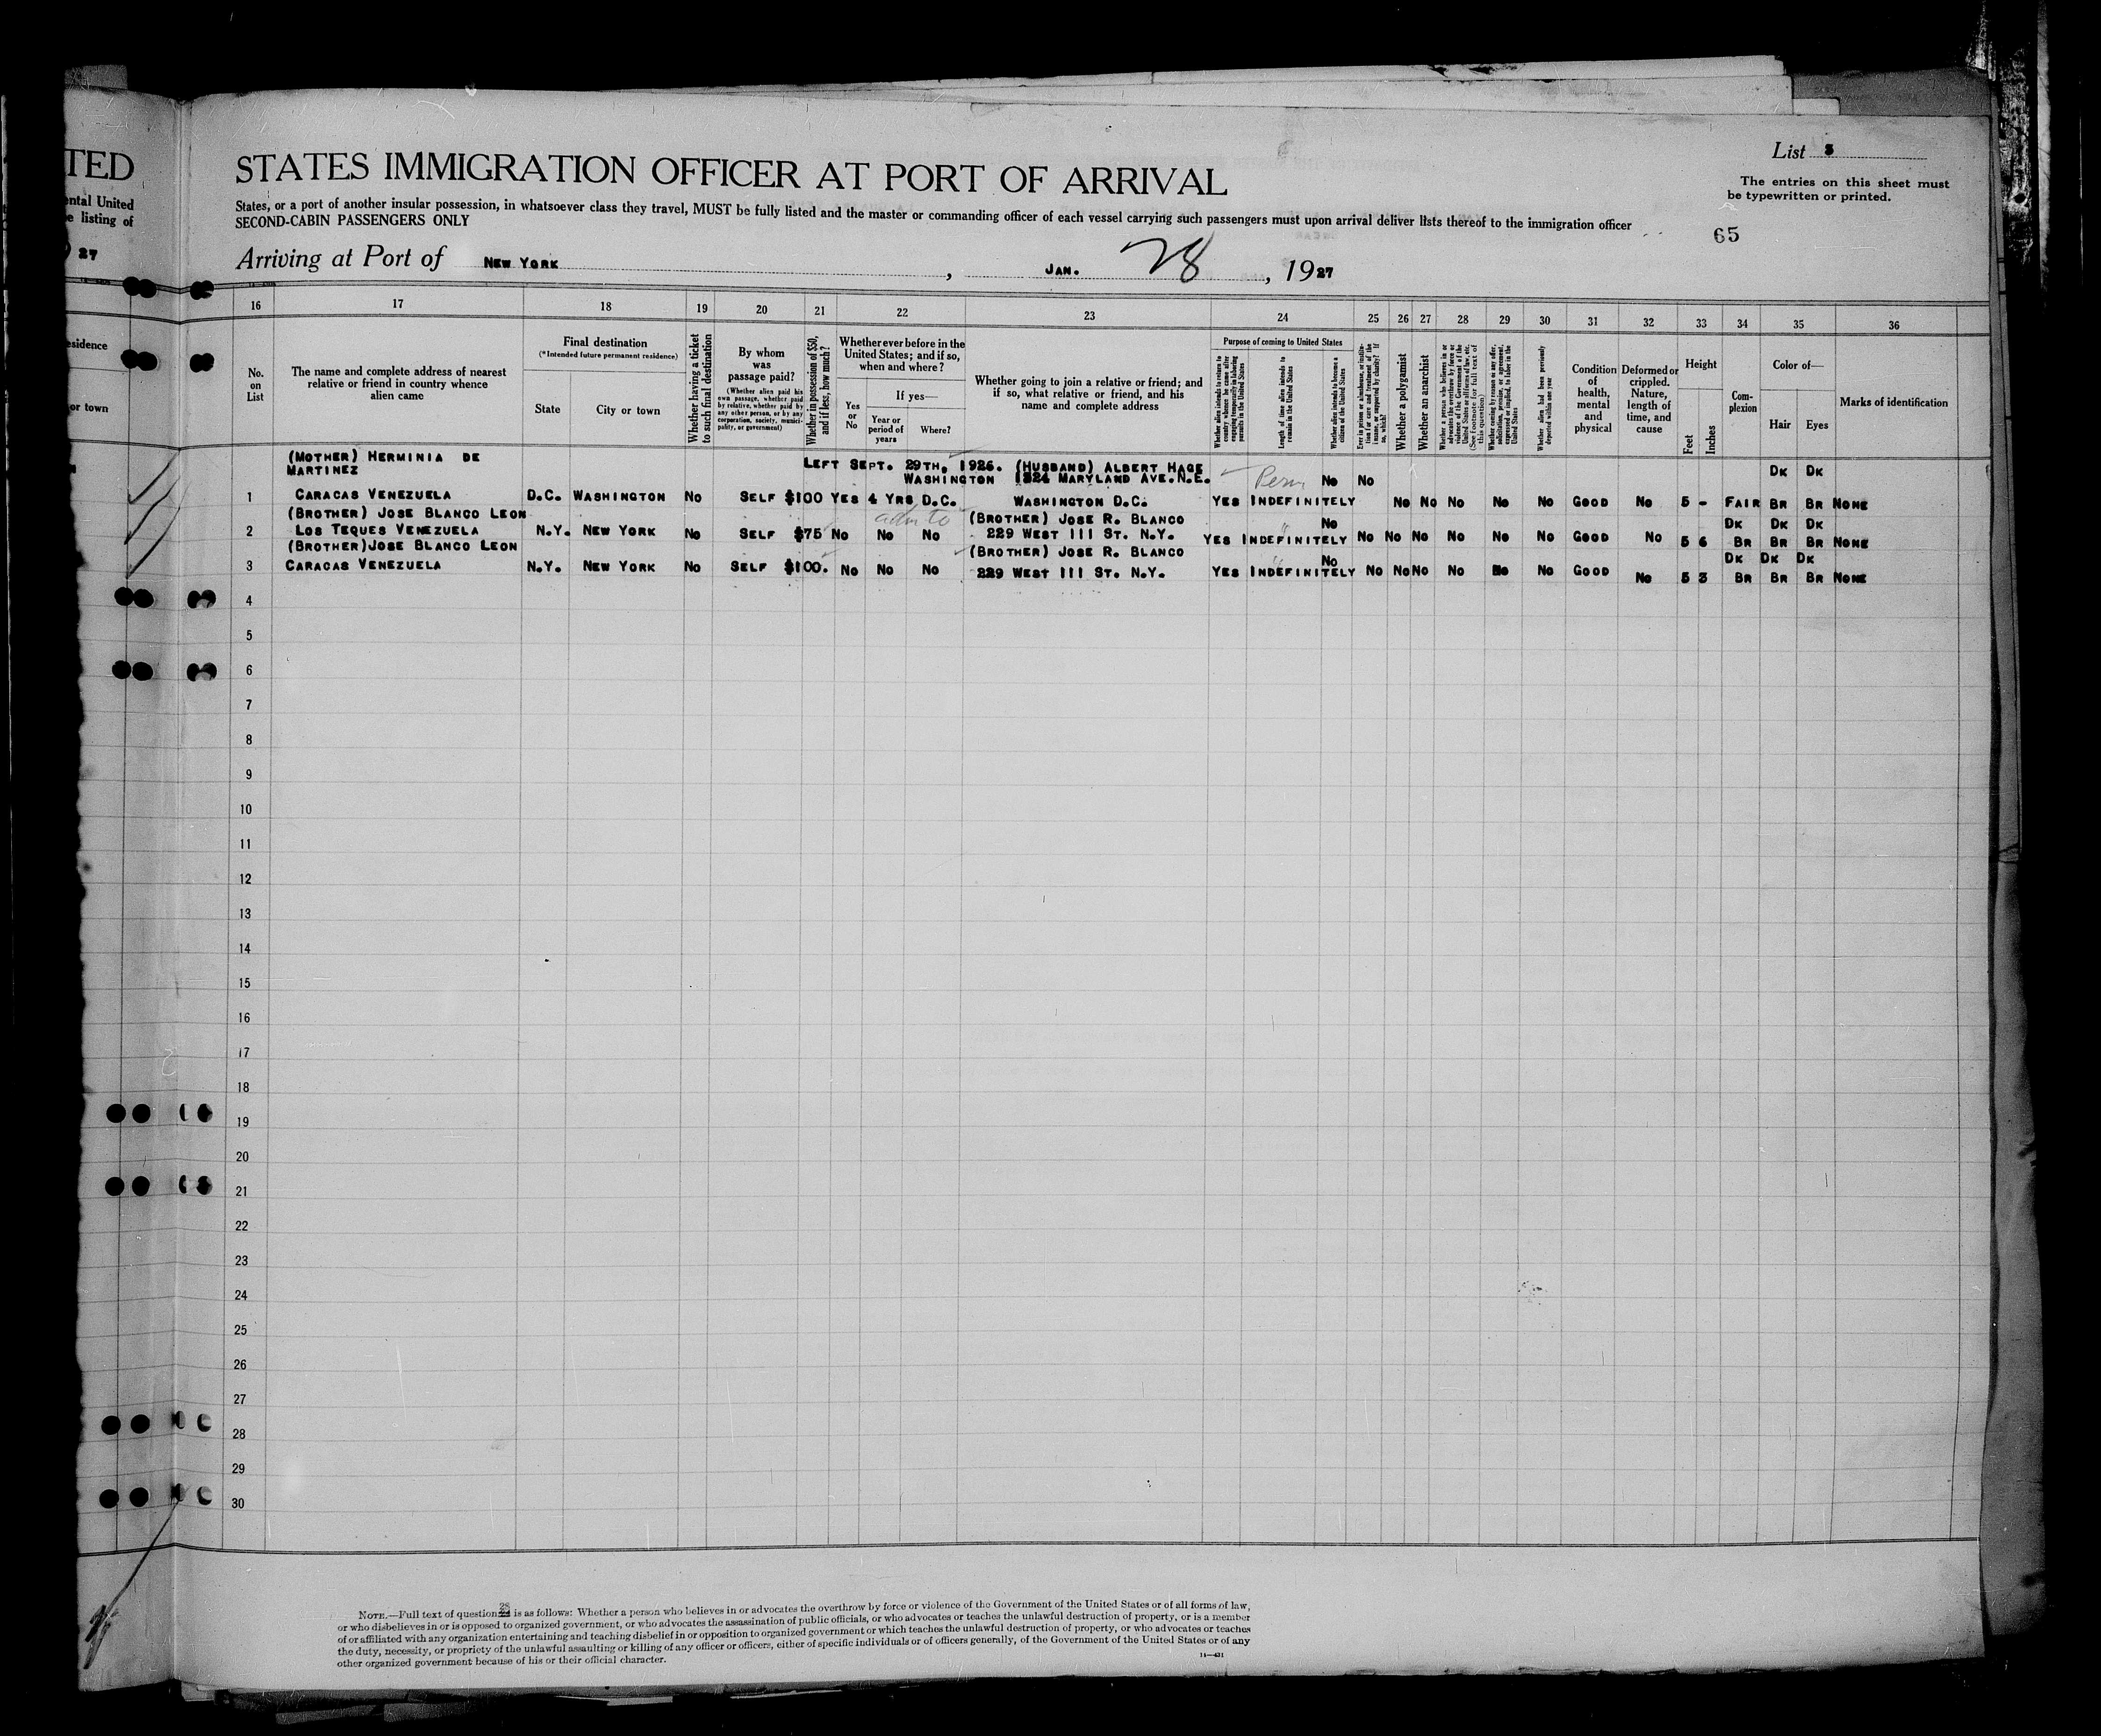 TED
ental United
e listing of
27
esidence
or town
STATES IMMIGRATION OFFICER AT PORT OF ARRIVAL
States, or a port of another insular possession, in whatsoever class they travel, MUST be fully listed and the master or commanding officer of each vessel carrying such passengers must upon arrival deliver lists thereof to the immigration officer
SECOND-CABIN PASSENGERS ONLY
List 3
The entries on this sheet must
be typewritten or printed.
65
Arriving at Port of NEW YORK, JAN. 28, 1927
16 17 18 19 20 21 22 23 24 25 26 27 28 29 30 31 32 33 34 35 36
No.
on
List
The name and complete address of nearest
relative or friend in country whence
alien came
Final destination
(*Intended future permanent residence)
State
City or town
Whether having a ticket
to such final destination
By whom
was
passage paid?
(Whether alien paid his
own passage, whether paid
by relative, whether paid by
any other person, or by any
corporation, society, munici-
pality, or government)
Whether in possession of $50,
and if less, how much?
Whether ever before in the
United States; and if so,
when and where?
Yes
or
No
If yes—
Year or
period of
years
Where?
Whether going to join a relative or friend; and
if so, what relative or friend, and his
name and complete address
Purpose of coming to United States
Whether alien intends to return to
country whence he came after
engaging temporarily in laboring
pursuits in the United States
Length of time alien intends to
remain in the United States
Whether alien intends to become a
citizen of the United States
Whether a polygamist
Whether an anarchist
(See footnote for full text of
this question)
Whether coming by reason of any offer,
solicitation, promise, or agreement,
expressed or implied, to labor in the
United States
Whether alien had been previously
deported within one year
Condition
of
health,
mental
and
physical
Deformed or
crippled.
Nature,
length of
time, and
cause
Height
Feet
Inches
Com-
plexion
Color of—
Hair
Eyes
Marks of identification
(MOTHER) HERMINIA DE LEFT SEPT. 29TH, 1926. (HUSBAND) ALBERT HAGE DK DK
MARTINEZ WASHINGTON 1324 MARYLAND AVE.N.E. Perm No No
1 CARACAS VENEZUELA D.C. WASHINGTON NO SELF $100 YES 4 YRS D.C. WASHINGTON D.C. YES INDEFINITELY NO NO NO NO NO GOOD NO 5 - FAIR BR BR NONE
(BROTHER) JOSE BLANCO LEON adm to (BROTHER) JOSE R. BLANCO No DK DK DK
2 LOS TEQUES VENEZUELA N.Y. NEW YORK NO SELF $75 NO NO NO 229 WEST 111 ST. N.Y. YES INDEFINITELY NO NO NO NO NO NO GOOD NO 5 6 BR BR BR NONE
(BROTHER)JOSE BLANCO LEON (BROTHER) JOSE R. BLANCO No DK DK DK
3 CARACAS VENEZUELA N.Y. NEW YORK NO SELF $100. NO NO NO 229 WEST 111 ST. N.Y. YES INDEFINITELY NO NO NO NO NO NO GOOD NO 5 3 BR BR BR NONE
4
5
6
7
8
9
10
11
12
13
14
15
16
17
18
19
20
21
22
23
24
25
26
27
28
29
30
NOTE.—Full text of question 28 is as follows: Whether a person who believes in or advocates the overthrow by force or violence of the Government of the United States or of all forms of law,
or who disbelieves in or is opposed to organized government, or who advocates the assassination of public officials, or who advocates or teaches the unlawful destruction of property, or is a member
of or affiliated with any organization entertaining and teaching disbelief in or opposition to organized government or which teaches the unlawful destruction of property, or who advocates or teaches
the duty, necessity, or propriety of the unlawful assaulting or killing of any officer or officers, either of specific individuals or of officers generally, of the Government of the United States or of any
other organized government because of his or their official character.
14—431